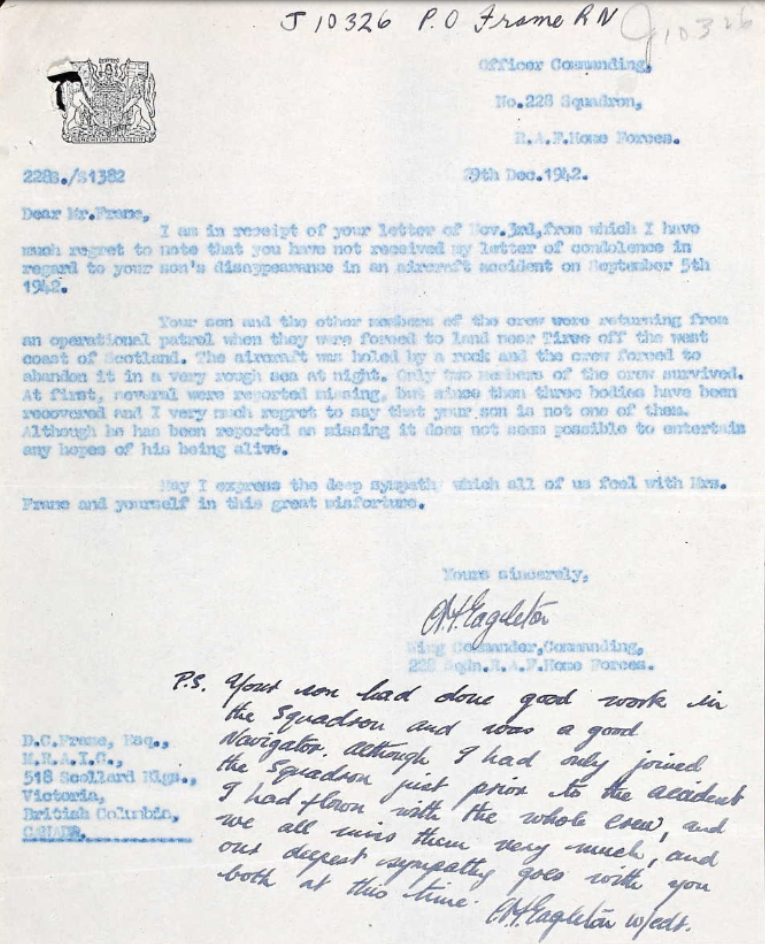 J 10326 P.O Frame RN
J10326
Officer Commanding,
No.228 Squadron,
R.A.F.Home Forces.
228S./S1382
29th Dec.1942.
Dear Mr.Frame,
I am in receipt of your letter of Nov.3rd,from which I have
much regret to note that you have not received my letter of condolence in
regard to your son's disappearance in an aircraft accident on September 5th
1942.
Your son and the other members of the crew were returning from
an operational patrol when they were forced to land near Tiree off the west
coast of Scotland. The aircraft was holed by a rock and the crew forced to
abandon it in a very rough sea at night. Only two members of the crew survived.
At first, several were reported missing, but since then three bodies have been
recovered and I very much regret to say that your son is not one of them.
Although he has been reported as missing it does not seem possible to entertain
any hopes of his being alive.
May I express the deep sympathy which all of us feel with Mrs.
Frame and yourself in this great misfortune.
Yours sincerely,
Eagleton
Wing Commander,Commanding,
228 Sqdn.R.A.F.Home Forces.
P.S. Your son had done good work in
the Squadron and was a good
Navigator. Although I had only joined
the Squadron just prior to the accident
I had flown with the whole crew, and
we all miss them very much, and
our deepest sympathy goes with you
both at this time.
Eagleton W/cdr.
D.C.Frame, Esq.,
M.R.A.I.C.,
518 Scollard Blgs.,
Victoria,
British Columbia,
CANADA.